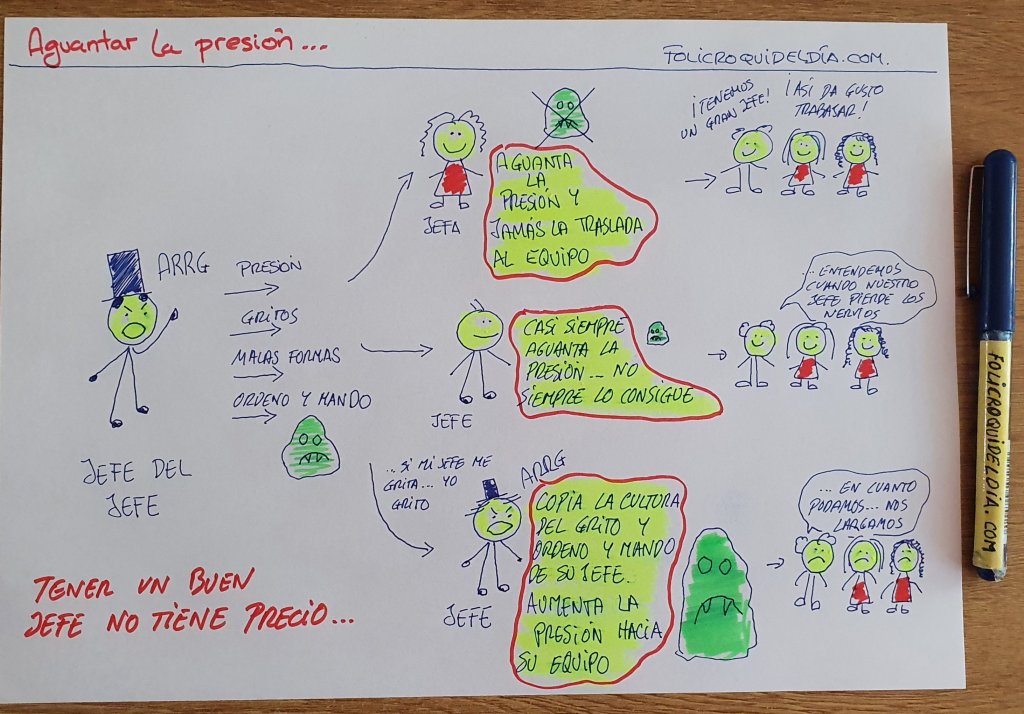 Aguantar la presión...
FOLICROQUIDELDÍA.COM.
ARRG
PRESIÓN
GRITOS
MALAS FORMAS
ORDENO Y MANDO
JEFE DEL
JEFE
JEFA
AGUANTA
LA
PRESIÓN Y
JAMÁS LA TRASLADA
AL EQUIPO
¡TENEMOS
UN GRAN JEFE!
¡ASÍ DA GUSTO
TRABAJAR!
JEFE
CASI SIEMPRE
AGUANTA LA
PRESIÓN... NO
SIEMPRE LO CONSIGUE
...ENTENDEMOS
CUANDO NUESTRO
JEFE PIERDE LOS
NERVIOS
...SI MI JEFE ME
GRITA... YO
GRITO
ARRG
JEFE
COPIA LA CULTURA
DEL GRITO Y
ORDENO Y MANDO
DE SU JEFE...
AUMENTA LA
PRESIÓN HACIA
SU EQUIPO
...EN CUANTO
PODAMOS... NOS
LARGAMOS
TENER UN BUEN
JEFE NO TIENE PRECIO...
FOLICROQUIDELDIA.COM